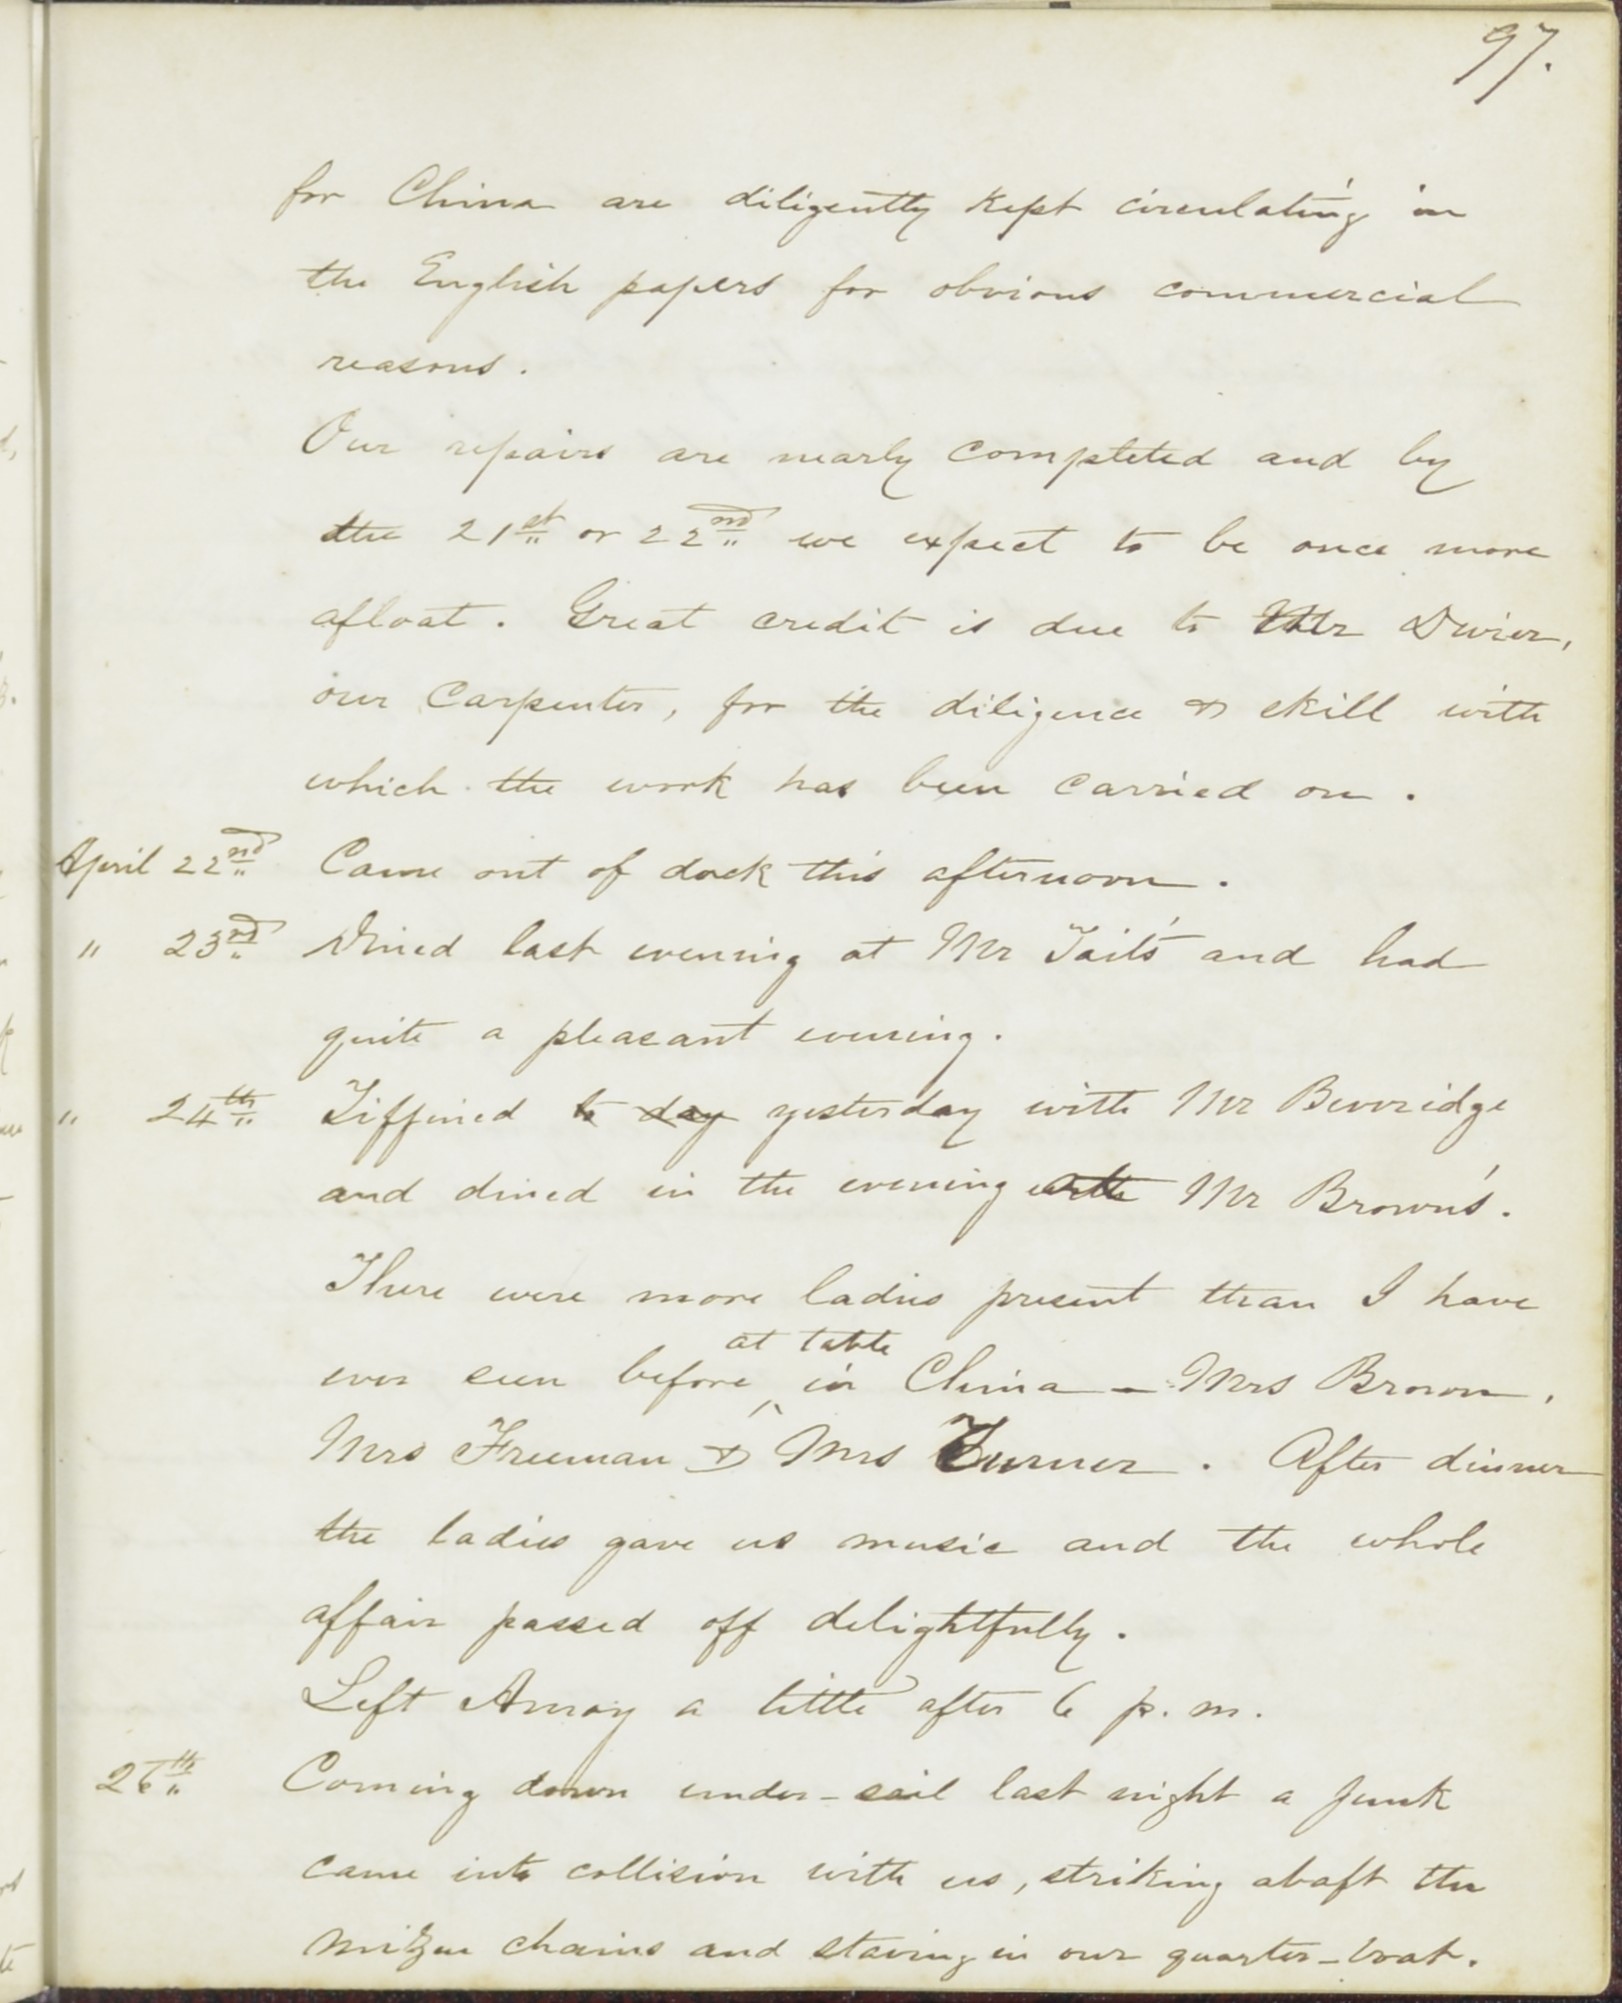 97.
for China are diligently kept circulating in
the English papers for obvious commercial
reasons.
Our repairs are nearly completed and by
the 21st or 22nd we expect to be once more
afloat. Great credit is due to Mr Dwier,
our Carpenter, for the diligence & skill with
which the work has been carried on.
April 22nd Came out of dock this afternoon.
" 23rd Dined last evening at Mr Tait's and had
quite a pleasant evening.
" 24th Tiffined to day yesterday with Mr Beveridge
and dined in the evening with Mr Brown's.
There were more ladies present than I have
at table
ever seen before ^ in China - Mrs Brown,
Mrs Freeman & Mrs Turner. After dinner
the ladies gave us music and the whole
affair passed off delightfully.
Left Amoy a little after 6 p.m.
26th Coming down under-sail last night a junk
came into collision with us, striking abaft the
mizen chains and staving in our quarter-boat.